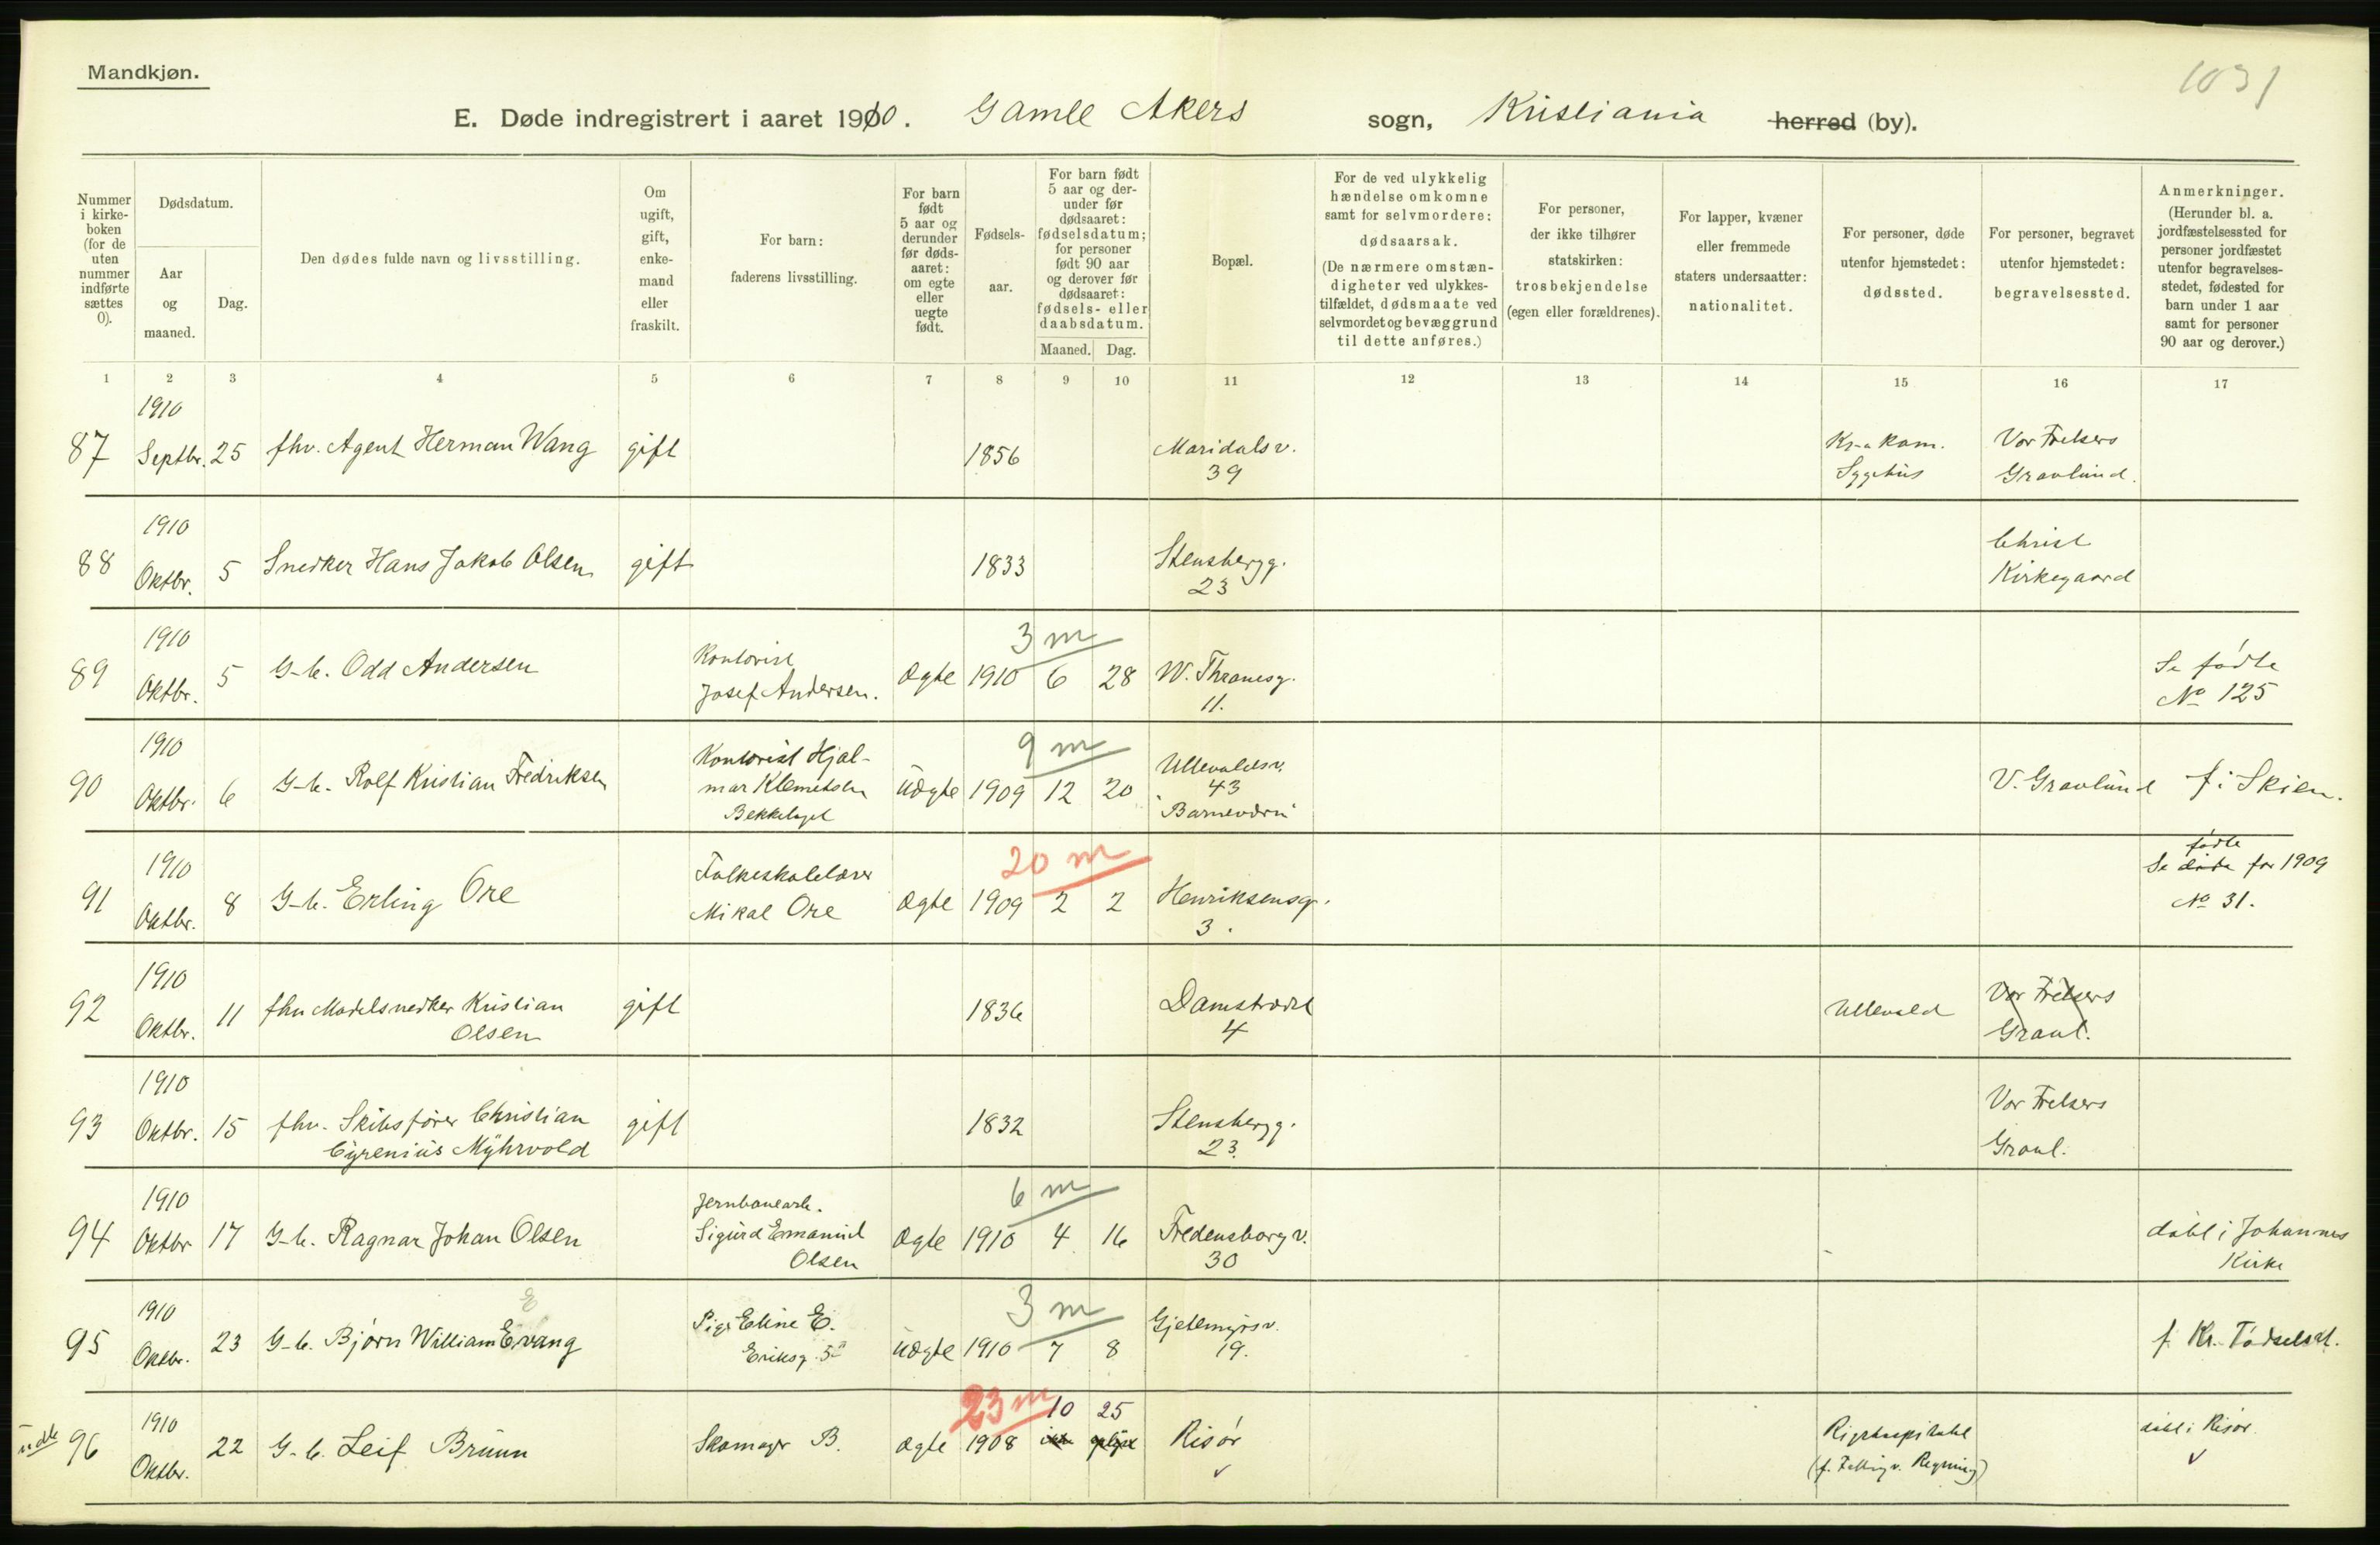 Mandkjøn.
1031
E. Døde indregistrert i aaret 1910. Gamle Akers sogn, Kristiania herred (by).
Nummer i kirke-boken (for de uten nummer indførte sættes 0).
Dødsdatum.
Aar og maaned.
Dag.
Den dødes fulde navn og livsstilling.
Om ugift, gift, enke-mand eller fraskilt.
For barn: faderens livsstilling.
For barn født 5 aar og derunder før døds-aaret: om egte eller uegte født.
Fødsels-aar.
For barn født 5 aar og der-under før dødsaaret: fødselsdatum; for personer født 90 aar og derover før dødsaaret: fødsels- eller daabsdatum.
Maaned. Dag.
Bopæl.
For de ved ulykkelig hændelse omkomne samt for selvmordere: dødsaarsak. (De nærmere omstæn-digheter ved ulykkes-tilfældet, dødsmaate ved selvmordet og bevæggrund til dette anføres.)
For personer, der ikke tilhører statskirken: trosbekjendelse (egen eller forældrenes).
For lapper, kvæner eller fremmede staters undersaatter: nationalitet.
For personer, døde utenfor hjemstedet: dødssted.
For personer, begravet utenfor hjemstedet: begravelsessted.
Anmerkninger. (Herunder bl. a. jordfæstelsessted for personer jordfæstet utenfor begravelses-stedet, fødested for barn under 1 aar samt for personer 90 aar og derover.)
1 2 3 4 5 6 7 8 9 10 11 12 13 14 15 16 17
1910
87 Septbr. 25 fhv. Agent Herman Wang gift 1856 Maridalsv. 39 Kr-a kom. Sygehus Vor Frelsers Gravlund.
1910
88 Oktbr. 5 Snedker Hans Jakob Olsen gift 1833 Stensbergg. 23 Christ Kirkegaard
1910 3 m
89 Oktbr. 5 G-b. Odd Andersen Kontorist Josef Andersen. Ægte 1910 6 28 W. Thranesg. 11. Se fødte No 125
1910 9 m
90 Oktbr. 6 G-b. Rolf Kristian Fredriksen Kontorist Hjal-mar Klemetsen Bekkelaget Uægte 1909 12 20 Ullevaldsv. 43 "Barneværn" V. Gravlund f. i Skien.
1910 20 m
91 Oktbr. 8 G-b. Erling Ore Folkeskolelærer Mikal Ore Ægte 1909 2 2 Henriksensg. 3. Se døde fødte for 1909 No 31.
1910
92 Oktbr. 11 fhv Modelsnedker Kristian Olsen gift 1836 Damstrædet 4 Ullevold Vor Frelsers Gravl.
1910
93 Oktbr. 15 fhv. Skibsfører Christian Cyrenius Myhrvold gift 1832 Stensbergg. 23. Vor Frelsers Gravl.
1910 6 m
94 Oktbr 17 G-b. Ragnar Johan Olsen Jernbanearb. Sigurd Emanuel Olsen Ægte 1910 4 16 Fredensborgv. 30 døbt i Johannes Kirke
1910 E 3 m
95 Oktbr. 23 G-b. Bjørn William Evang Pige Eline E. Eriksg. 5 Uægte 1910 7 8 Gjetemyrsv. 19. f. Kr. Fødselsst.
1910 23 m 10 25
96 Oktbr. 22 G-b. Leif Bruun Skomager B. Ægte 1908 ikke oplyst Risør Rigshospitalet døbt i Risør.